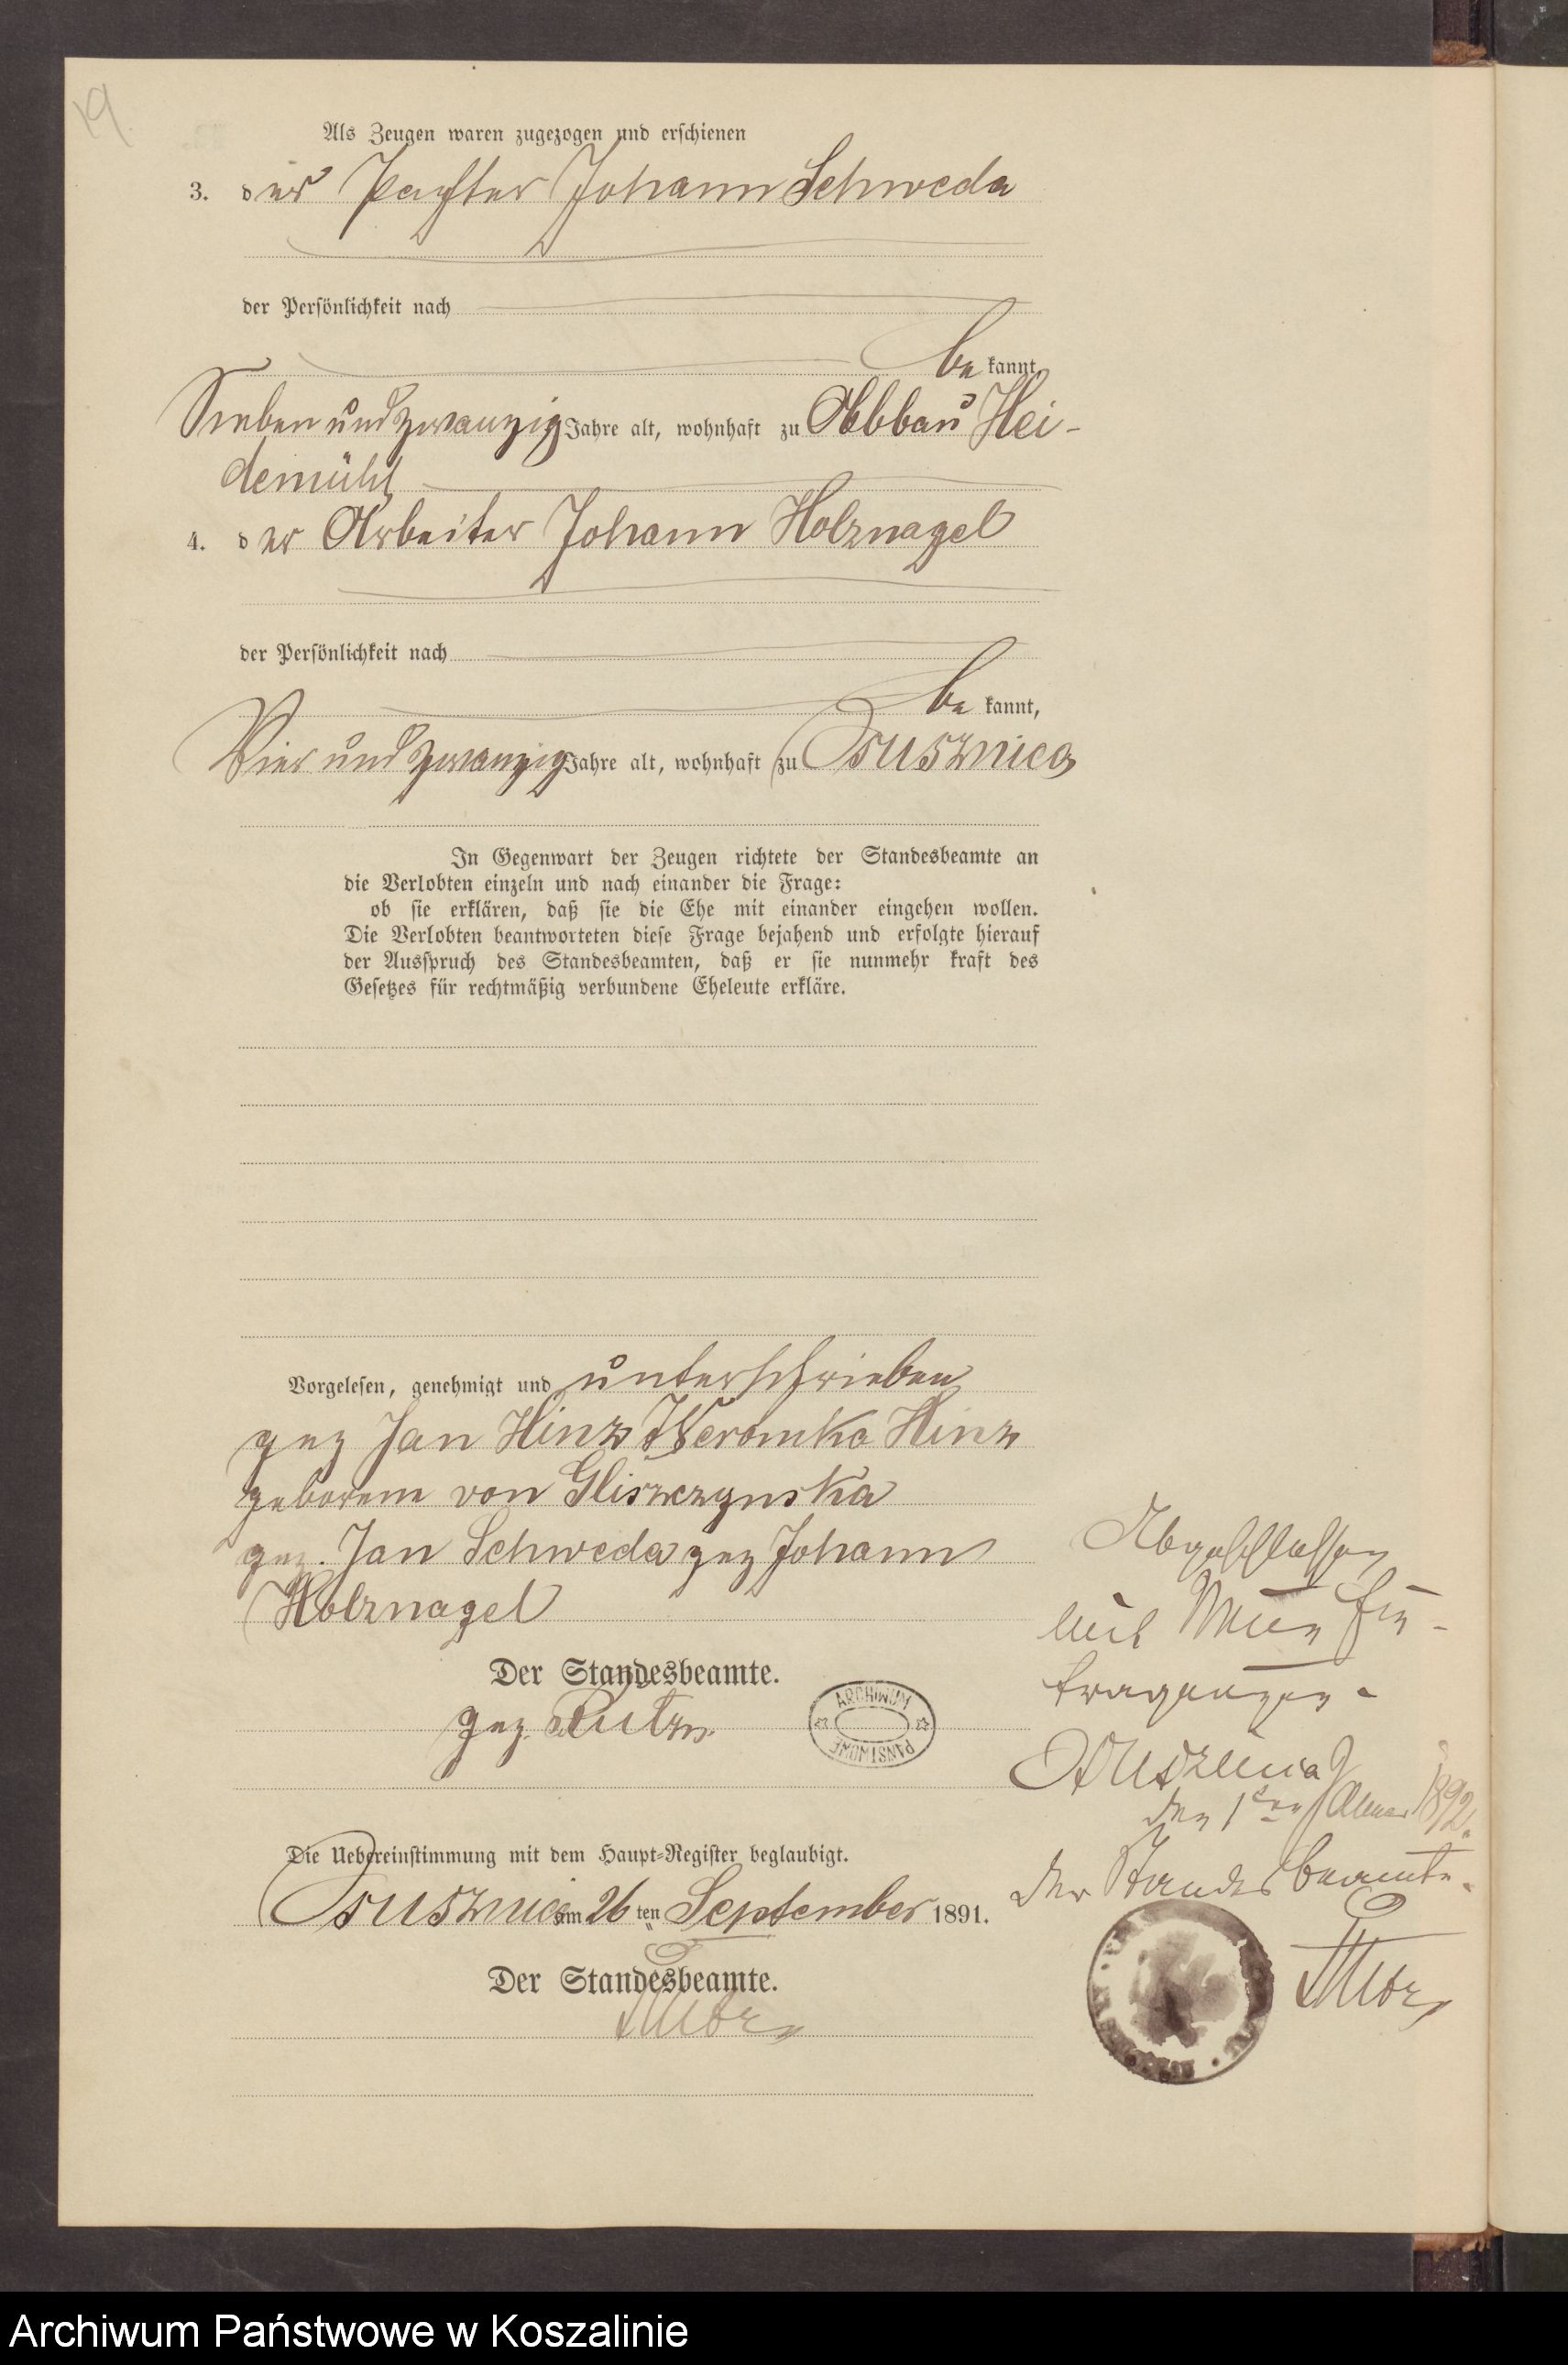 19.
Als Zeugen waren zugezogen und erschienen
3. der Pächter Johann Schweda
der Persönlichkeit nach
be kannt,
Sieben und zwanzig Jahre alt, wohnhaft zu Abbau Hei-
demühl
4. der Arbeiter Johann Holznagel
der Persönlichkeit nach
be kannt,
Vier und zwanzig Jahre alt, wohnhaft zu Osusznica
In Gegenwart der Zeugen richtete der Standesbeamte an
die Verlobten einzeln und nach einander die Frage:
ob sie erklären, daß sie die Ehe mit einander eingehen wollen.
Die Verlobten beantworteten diese Frage bejahend und erfolgte hierauf
der Ausspruch des Standesbeamten, daß er sie nunmehr kraft des
Gesetzes für rechtmäßig verbundene Eheleute erkläre.
Vorgelesen, genehmigt und unterschrieben
gez Jan Hinz Weronika Hinz
geborene von Gliszczynska
gez. Jan Schweda gez Johann
Holznagel
Der Standesbeamte.
gez.
ARCHIWUM PAŃSTWOWE
Die Uebereinstimmung mit dem Haupt-Register beglaubigt.
Osusznica am 26 ten September 1891.
Der Standesbeamte.
Abgeschlossen
mit Neun Ein-
tragungen.
Osusznica
den 1ten Januar 1892.
Der Standesbeamte.
Archiwum Państwowe w Koszalinie